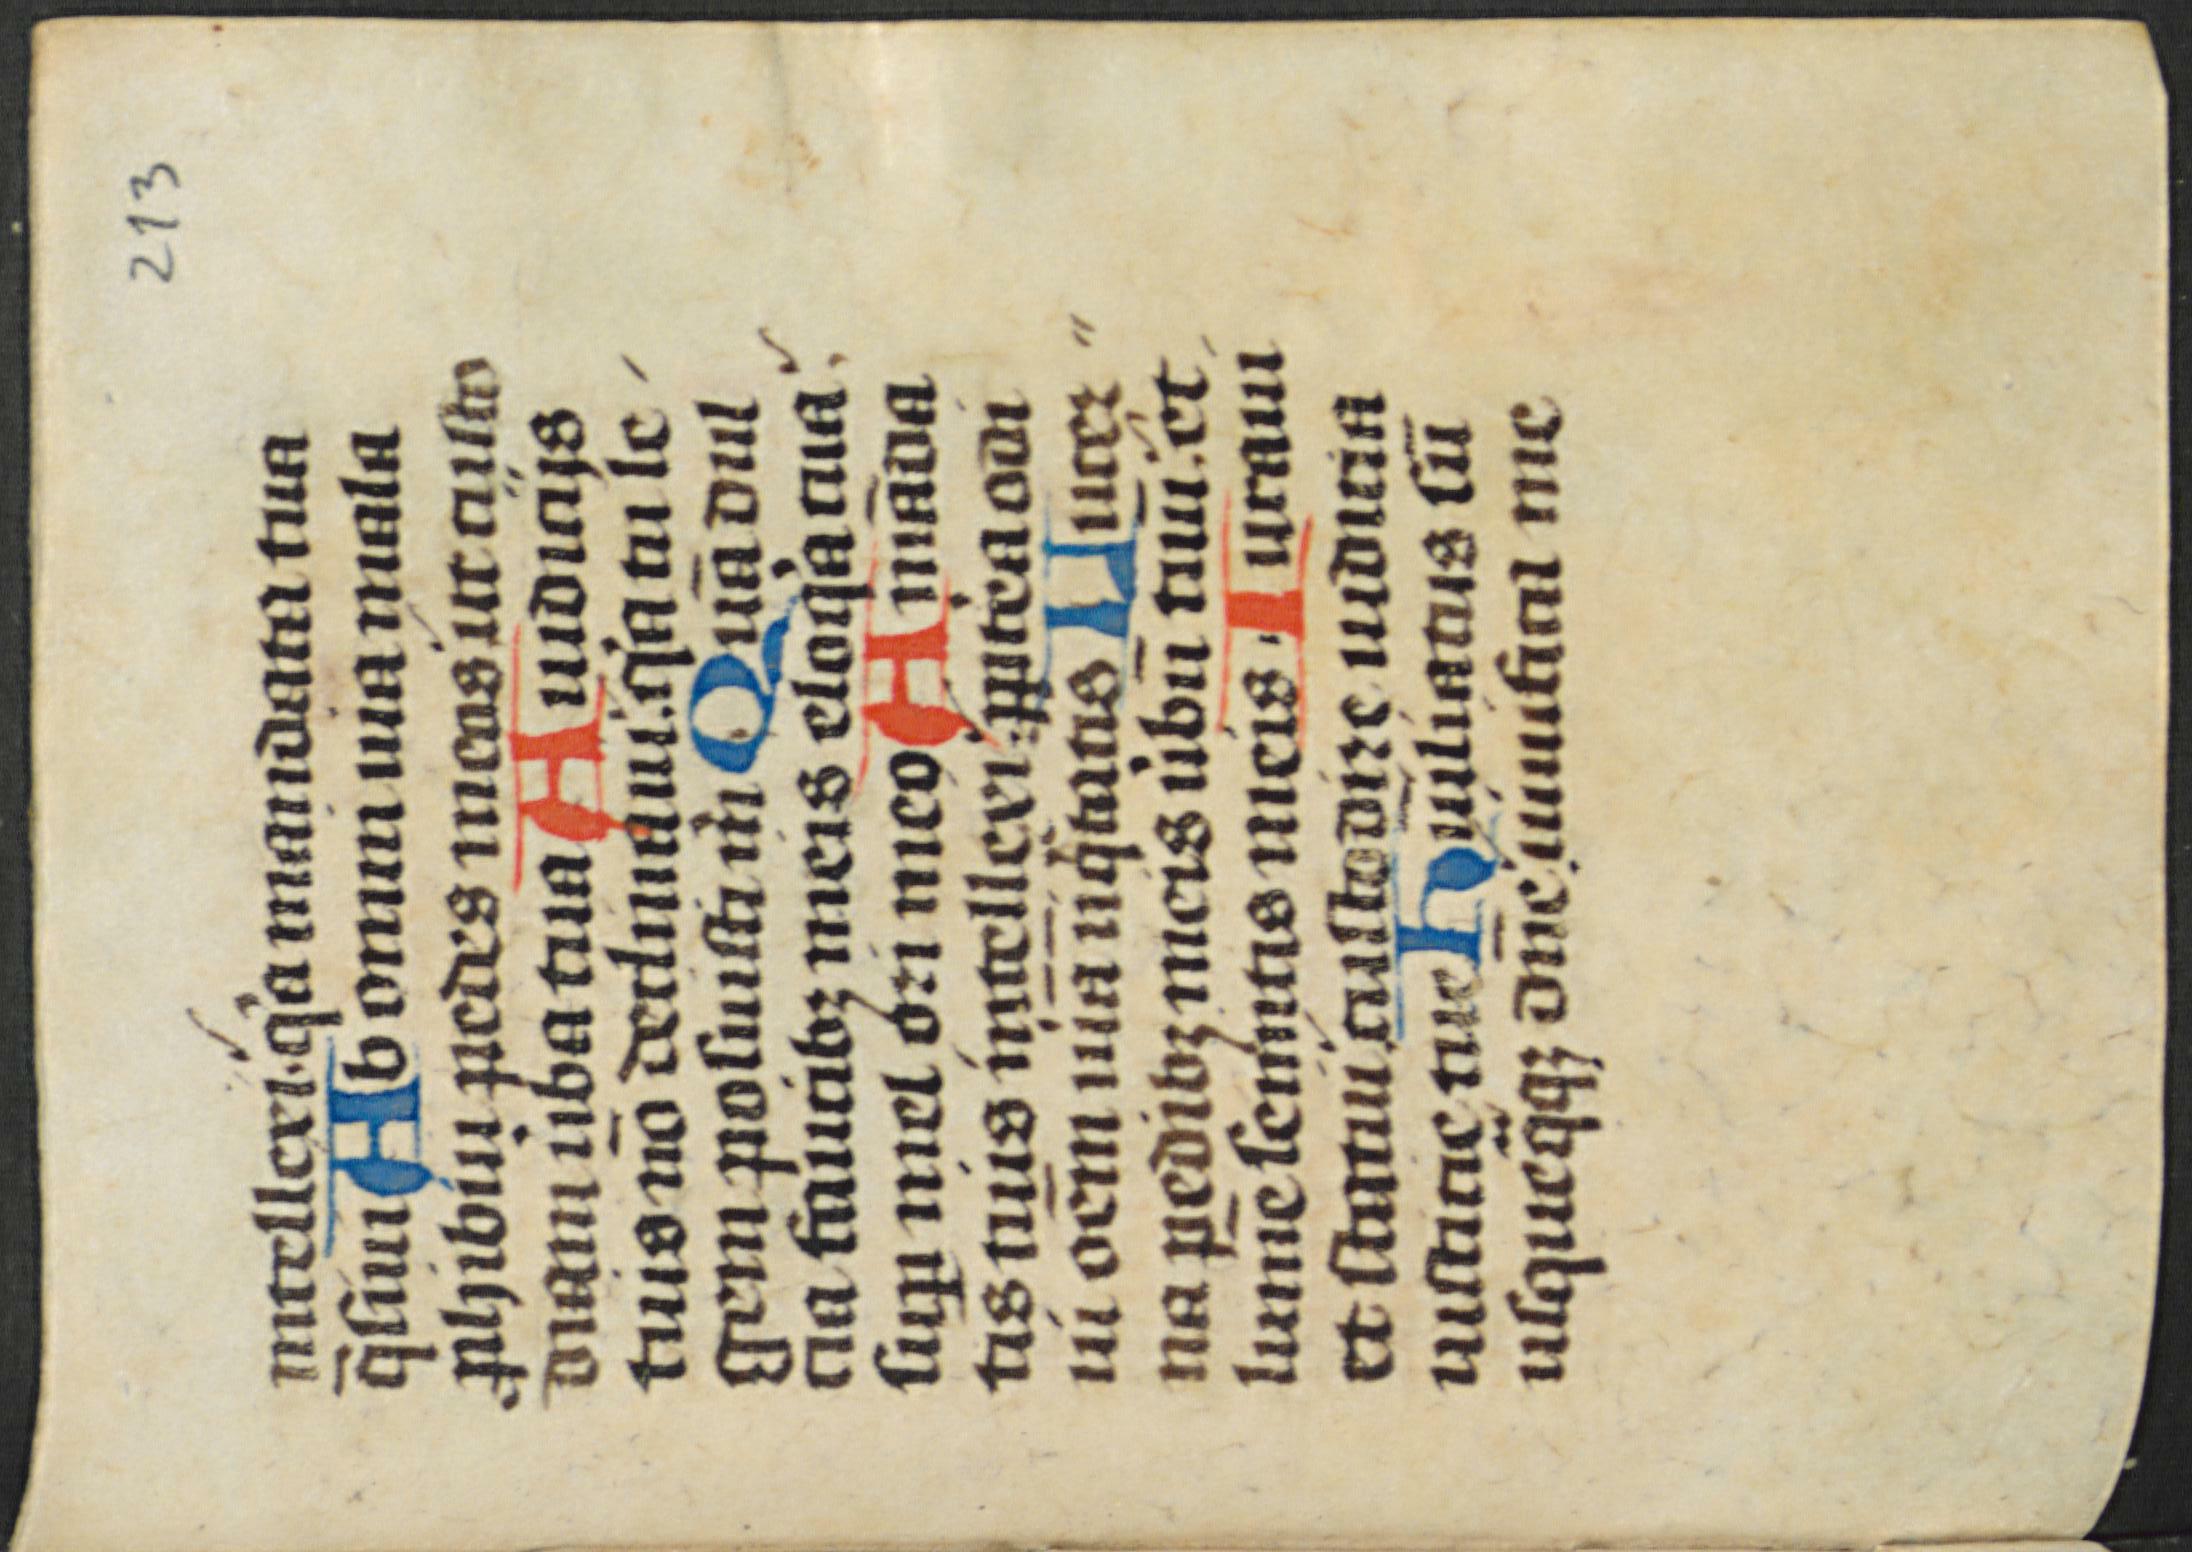 213
intellexi. q̃a mandata tua
q̄siui Ab omni uia mala
ꝓhibui pedes meos ut custo
diam ũba tua A iudicijs
tuis nō declinaui. q̃a tu le
gem posuisti m̃ Quā dul
cia faucibꝫ meis eloq̃a tua,
suꝑ mel ori meo A mādā
tis tuis intellexi: ꝓpterea odi
ui oem̄ uia iniq̃tatis Lucer
na pedibꝫ meis ũbū tuũ. et
lume semitis meis. Iuraui
et statui custodire iudicia
iusticie tue Humiliatus sū
usquequaqꝫ dn̄e, uiuifica me